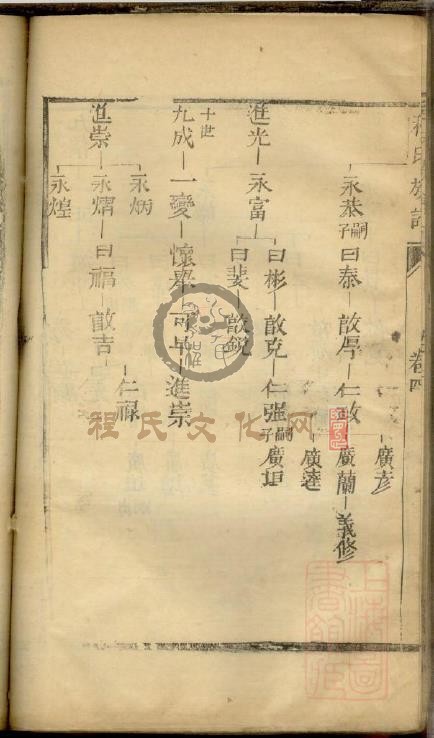 程氏族譜
卷四
廣彥
永恭嗣子曰泰 啟厚 仁政 廣蘭 義修
廣達
進光 永富 曰彬 啟克 仁强嗣子廣垣
曰斐 啟銳
十世
九成 一夔 懷 進崇
仁祿
永炳
進崇 永熠 曰福 啟吉
永煌
程氏文化网
上海圖書館藏